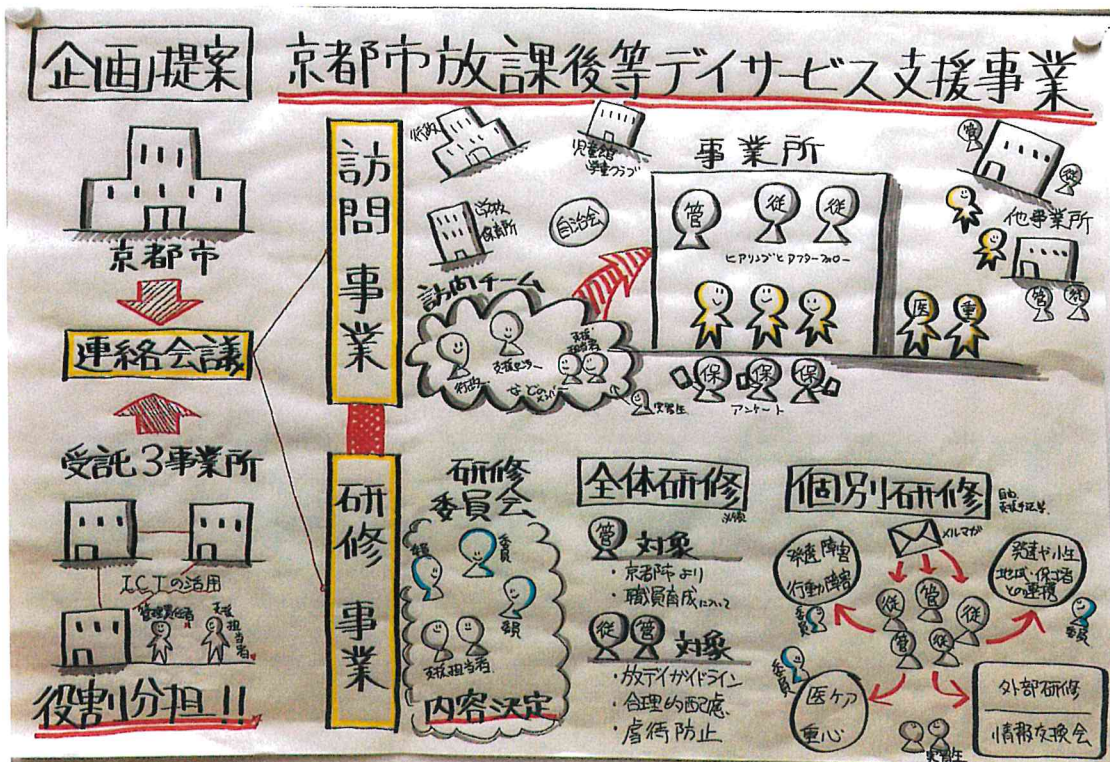 企画提案
京都市放課後等デイサービス支援事業
京都市
連絡会議
受託3事業所
ICTの活用
管理責任者
支援担当者
役割分担!!
訪問事業
行政
児童館
学童クラブ
学校
保育所
自治会
訪問チーム
行政
支援センター
支援担当者
などのメンバー
実習生
事業所
管
従
従
ヒアリングとアフターフォロー
保
保
保
アンケート
医
重
管
従
他事業所
管
従
研修事業
研修
委員会
委員
委員
委員
支援担当者
内容決定
全体研修
必須
管 対象
・京都市より
・職員育成について
従 管 対象
・放デイガイドライン
・合理的配慮
・虐待防止
個別研修
メルマガ
発達障害
行動障害
委員
地域・保護者
との連携
委員
従
管
従
管
従
委員
医ケア
重心
実習生
外部研修
情報交換会